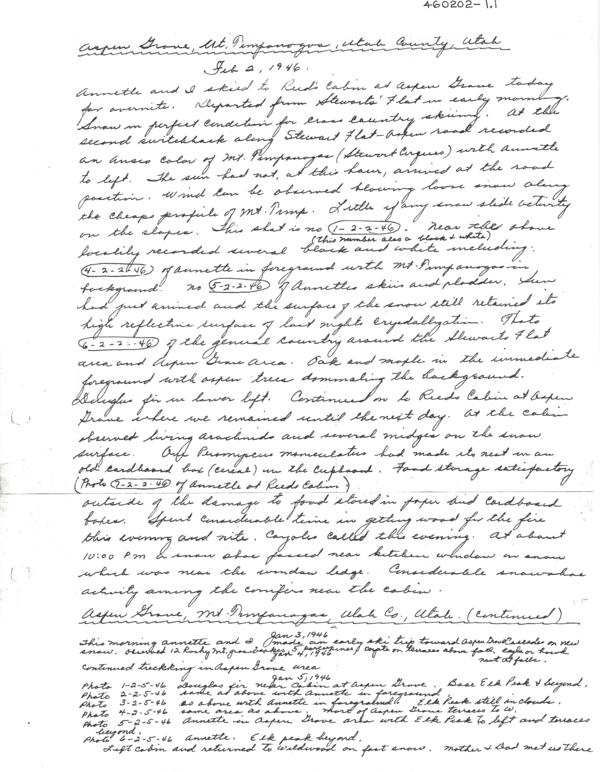 460202-1.1
Aspen Grove, Mt. Timpanogos, Utah County, Utah
Feb 2, 1946.
Annette and I skied to Reed's Cabin at Aspen Grove today
for overnite. Departed from Stewarts' Flat in early morning.
Snow in perfect condition for cross country skiing. At the
second switchback along Stewart Flat-Aspen road recorded
an Ansco color of Mt. Timpanogos (Stewart Cirques) with Annette
to left. The sun had not, at this hour, arrived at the road
position. Wind can be observed blowing loose snow along
the profile of Mt. Timp. Little if any snow slide activity
on the slopes. This shot is no (1-2-2-46). Near the above
(this number also a black & white)
locality recorded several black and white including:
(4-2-2-46) of Annette in foreground with Mt. Timpanogos in
background. no (5-2-2-46) of Annettes skiis and . Sun
had just arrived and the surface of the snow still retained its
high reflective surface of last nights crystallization. Photo
(6-2-2-46) of the general country around the Stewarts Flat
area and Aspen Grove area. Oak and maple in the immediate
foreground with aspen trees dominating the background.
Douglas fir in lower left. Continued on to Reeds Cabin at Aspen
Grove where we remained until the next day. At the cabin
observed living arachnids and several midges on the snow
surface. One Peromyscus maniculatus had made its nest in an
old cardboard box (cereal) in the cupboard. Food storage satisfactory
(Photo (7-2-2-46) of Annette at Reeds Cabin)
outside of the damage to food stored in paper and cardboard
boxes. Spent considerable time in getting wood for the fire
this evening and nite. Coyotes called this evening. At about
10:00 P.M a snow shoe passed near kitchen window on snow
which was near the window ledge. Considerable snowshoe
activity among the conifers near the cabin.
Aspen Grove, Mt. Timpanogos, Utah Co., Utah. (continued)
Jan 3, 1946
This morning Annette and I made an early ski trip toward Aspen Grove Cascades on new
snow. Observed 12 Rocky Mt. grosbeaks, 5 porcupines, coyote on terraces above fall, eagle or hawk
Jan 4, 1946
nest at falls.
continued treckking in Aspen Grove area
Jan 5, 1946
Photo 1-2-5-46 Douglas fir near Cabin at Aspen Grove. Base Elk Peak beyond.
Photo 2-2-5-46 same as above with Annette in foreground
Photo 3-2-5-46 as above with Annette in foreground. Elk Peak still in clouds.
Photo 4-2-5-46 same area as above. More of Aspen Grove terraces to W.
Photo 5-2-5-46 Annette in Aspen Grove area with Elk Peak to left and terraces
beyond.
Photo 6-2-5-46 Annette. Elk peak beyond.
Left cabin and returned to Wildwood on fast snow. Mother & Dad met us there